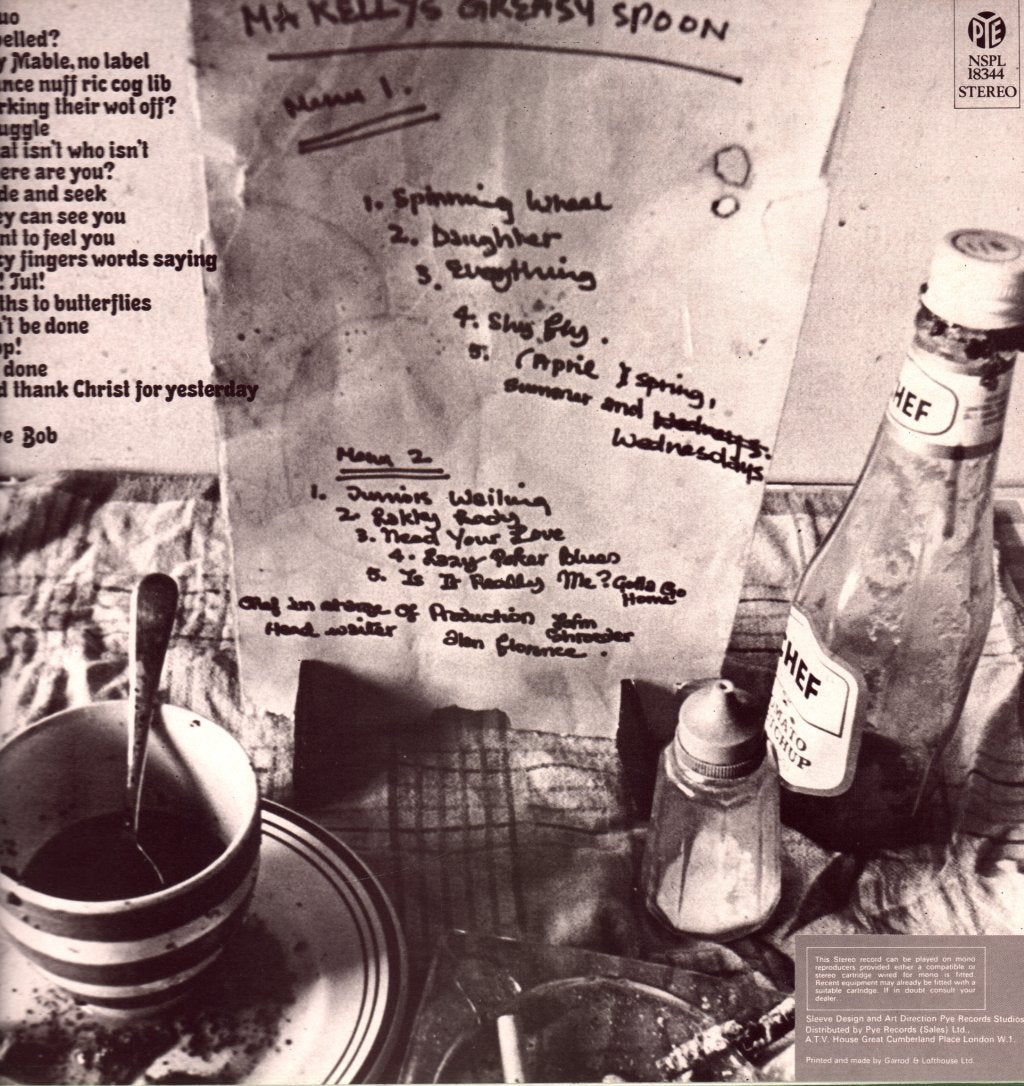 uo
elled?
y Mable, no label
nce nuff ric cog lib
rking their wot off?
uggle
at isn't who isn't
ere are you?
de and seek
ey can see you
nt to feel you
ky fingers words saying
! Tut!
ths to butterflies
't be done
op!
done
d thank Christ for yesterday
e Bob
MA KELLYS GREASY SPOON
Menu 1.
1. Spinning Wheel
2. Daughter
3. Everything
4. Shy fly.
5. (April) Spring,
Summer and
Wednesdays
Menu 2
1. Juniors Wailing
2. Lakky Lady
3. Need Your Love
4. Lazy Poker Blues
5. Is It Really Me? Gotta Go
Home
Chef in charge of Production John
Shroeder
Head waiter Alan Florence.
PYE
NSPL
18344
STEREO
HEF
CHEF
TOMATO
KETCHUP
This Stereo record can be played on mono
reproducers provided either a compatible or
stereo cartridge wired for mono is fitted.
Recent equipment may already be fitted with a
suitable cartridge. If in doubt consult your
dealer.
Sleeve Design and Art Direction Pye Records Studios
Distributed by Pye Records (Sales) Ltd.,
A.T.V. House Great Cumberland Place London W.1.
Printed and made by Garrod & Lofthouse Ltd.